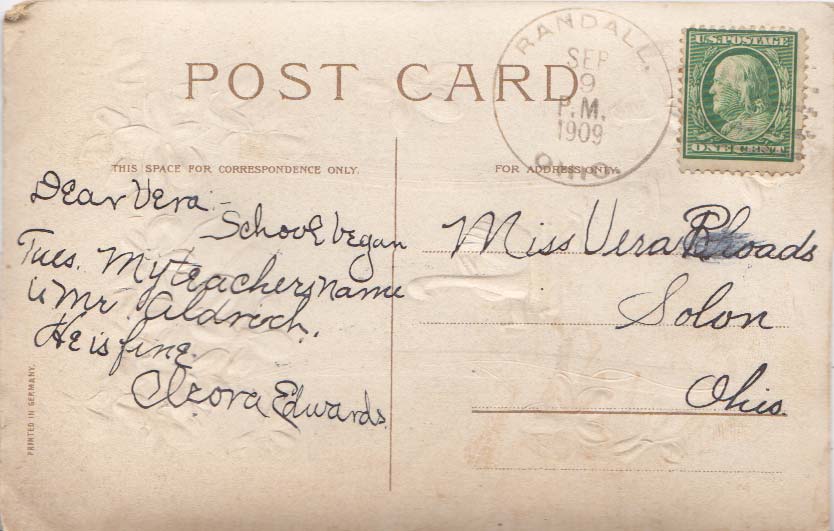 POST CARD
RANDALL,
SEP
9
P.M.
1909
OHIO.
U.S. POSTAGE
ONE CENT
THIS SPACE FOR CORRESPONDENCE ONLY.
FOR ADDRESS ONLY.
Dear Vera:-
School began
Tues. My teachers name
is Mr. Aldrich.
He is fine.
Edwards.
Miss Vera Rhoads
Solon
Ohio.
PRINTED IN GERMANY.